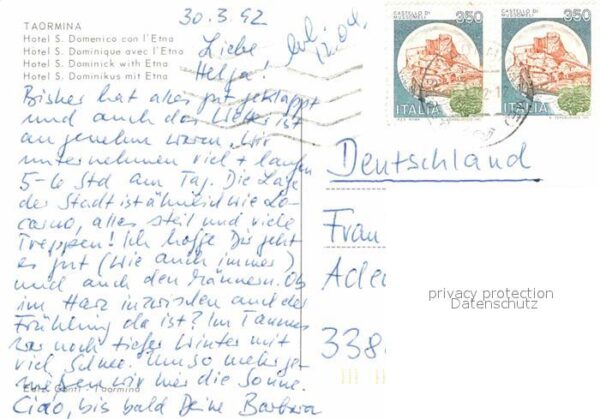 30.3.92
TAORMINA
Hotel S. Domenico con l'Etna
Hotel S. Dominique avec l'Etna
Hotel S. Dominick with Etna
Hotel S. Dominikus mit Etna
Liebe
Helga!
Bisher hat alles gut geklappt
und auch das Wetter ist
angenehm warm. Wir
unternehmen viel + laufen
5-6 Std am Tag. Die Lage
der Stadt ist ähnlich wie Lo-
carno, alles steil und viele
Treppen! Ich hoffe Dir geht
es gut (wie auch immer)
und auch den Männern. Ob
im Harz inzwischen auch der
Frühling da ist? Im Taunus
war noch tiefer Winter mit
viel Schnee. Umso mehr ge-
niessen wir hier die Sonne.
Ciao, bis bald Deine Barbara
CASTELLO DI
MUSSOMELI
350
ITALIA
CASTELLO DI
MUSSOMELI
350
ITALIA
Deutschland
Frau
Ade
338
privacy protection
Datenschutz